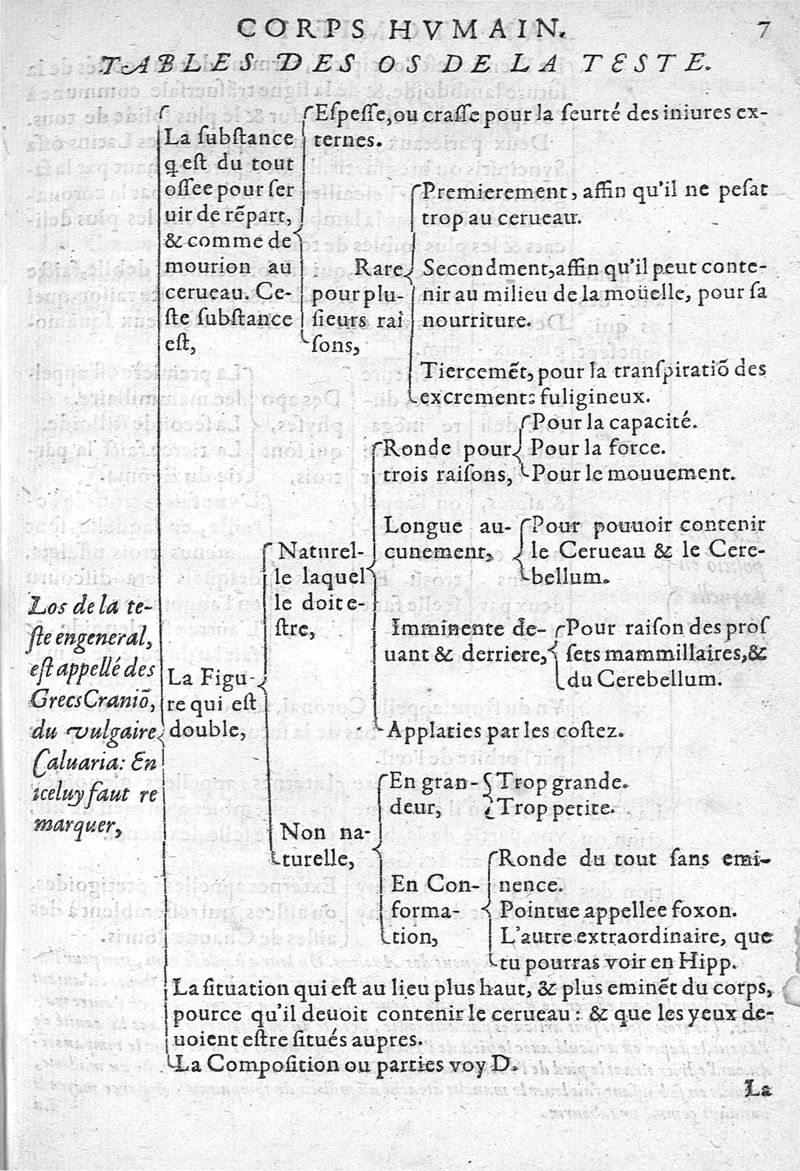 CORPS HVMAIN. 7
TABLES DES OS DE LA TESTE.
Los de la te-
ste en general,
est appellé des
Grecs Craniō,
du vulgaire
Caluaria: En
iceluy faut re
marquer,
La ſubſtance
q eſt du tout
oſſee pour ſer
uir de rēpart,
& comme de
mourion au
cerueau. Ce-
ſte ſubſtance
eſt,
Eſpeſſe, ou craſſe pour la ſeurté des iniures ex-
ternes.
Rare
pour plu-
ſieurs rai
ſons,
Premierement, affin qu'il ne peſat
trop au cerueau.
Secondment, affin qu'il peut conte-
nir au milieu de la moüelle, pour ſa
nourriture.
Tiercemēt, pour la tranſpiratiō des
excrement: fuligineux.
La Figu-
re qui eſt
double,
Naturel-
le laquel
le doit e-
ſtre,
Ronde pour
trois raiſons,
Pour la capacité.
Pour la force.
Pour le mouuement.
Longue au-
cunement,
Pour pouuoir contenir
le Cerueau & le Cere-
bellum.
Imminente de-
uant & derriere,
Pour raiſon des proſ
ſets mammillaires, &
du Cerebellum.
Applaties par les coſtez.
Non na-
turelle,
En gran-
deur,
Trop grande.
Trop petite.
En Con-
forma-
tion,
Ronde du tout ſans emi-
nence.
Pointue appellee foxon.
L'autre extraordinaire, que
tu pourras voir en Hipp.
La ſituation qui eſt au lieu plus haut, & plus eminēt du corps,
pource qu'il deuoit contenir le cerueau : & que les yeux de-
uoient eſtre ſitués aupres.
La Compoſition ou parties voy D.
La